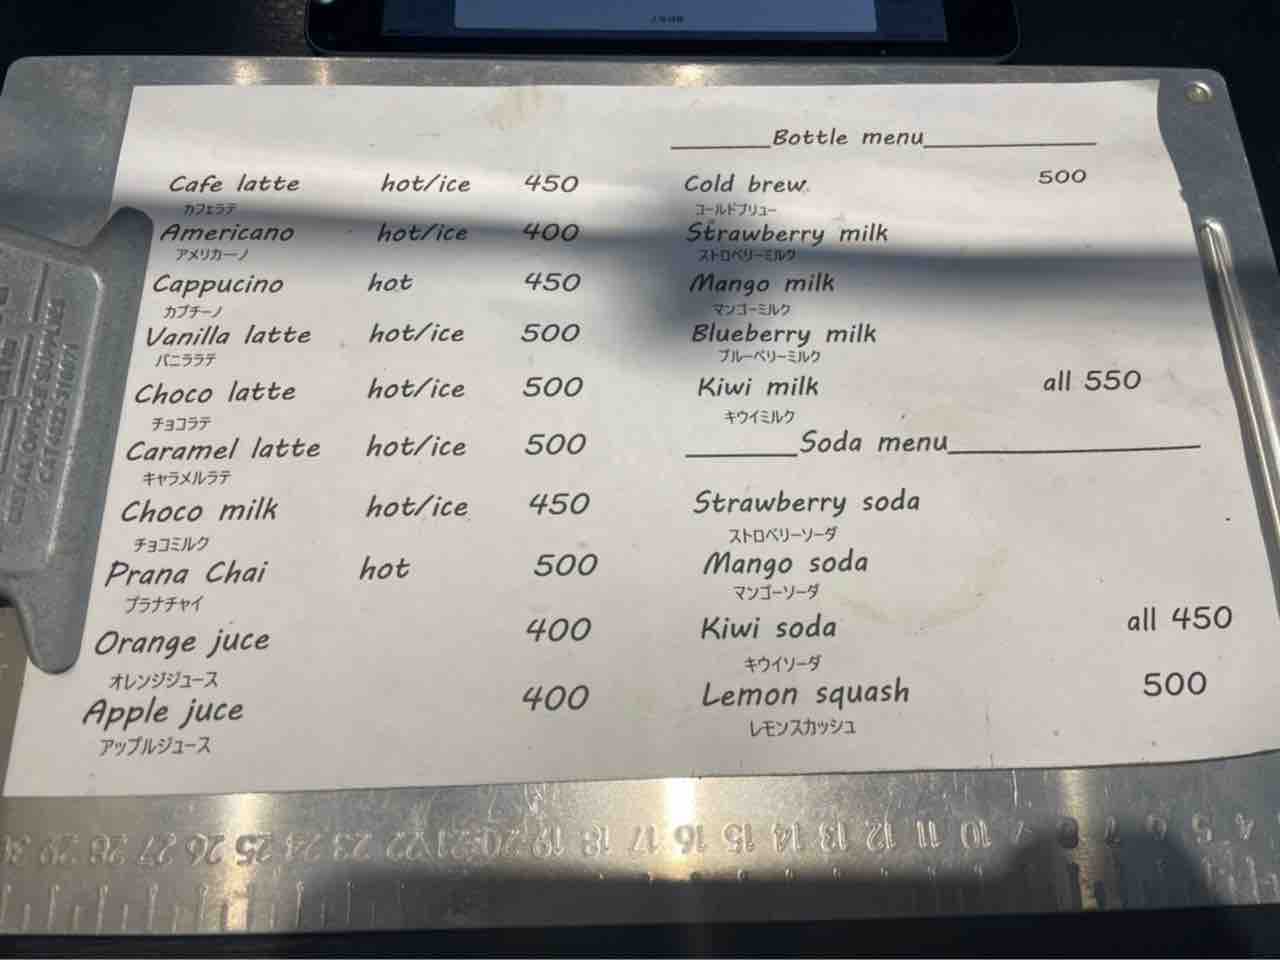 Cafe latte hot/ice 450
カフェラテ
Americano hot/ice 400
アメリカーノ
Cappucino hot 450
カプチーノ
Vanilla latte hot/ice 500
バニララテ
Choco latte hot/ice 500
チョコラテ
Caramel latte hot/ice 500
キャラメルラテ
Choco milk hot/ice 450
チョコミルク
Prana Chai hot 500
プラナチャイ
Orange juce 400
オレンジジュース
Apple juce 400
アップルジュース
Bottle menu
Cold brew 500
コールドブリュー
Strawberry milk
ストロベリーミルク
Mango milk
マンゴーミルク
Blueberry milk
ブルーベリーミルク
Kiwi milk all 550
キウイミルク
Soda menu
Strawberry soda
ストロベリーソーダ
Mango soda
マンゴーソーダ
Kiwi soda all 450
キウイソーダ
Lemon squash 500
レモンスカッシュ
30 29 28 27 26 25 24 23 22 21 20 19 18 17 16 15 14 13 12 11 10 9 8 7 6 5 4